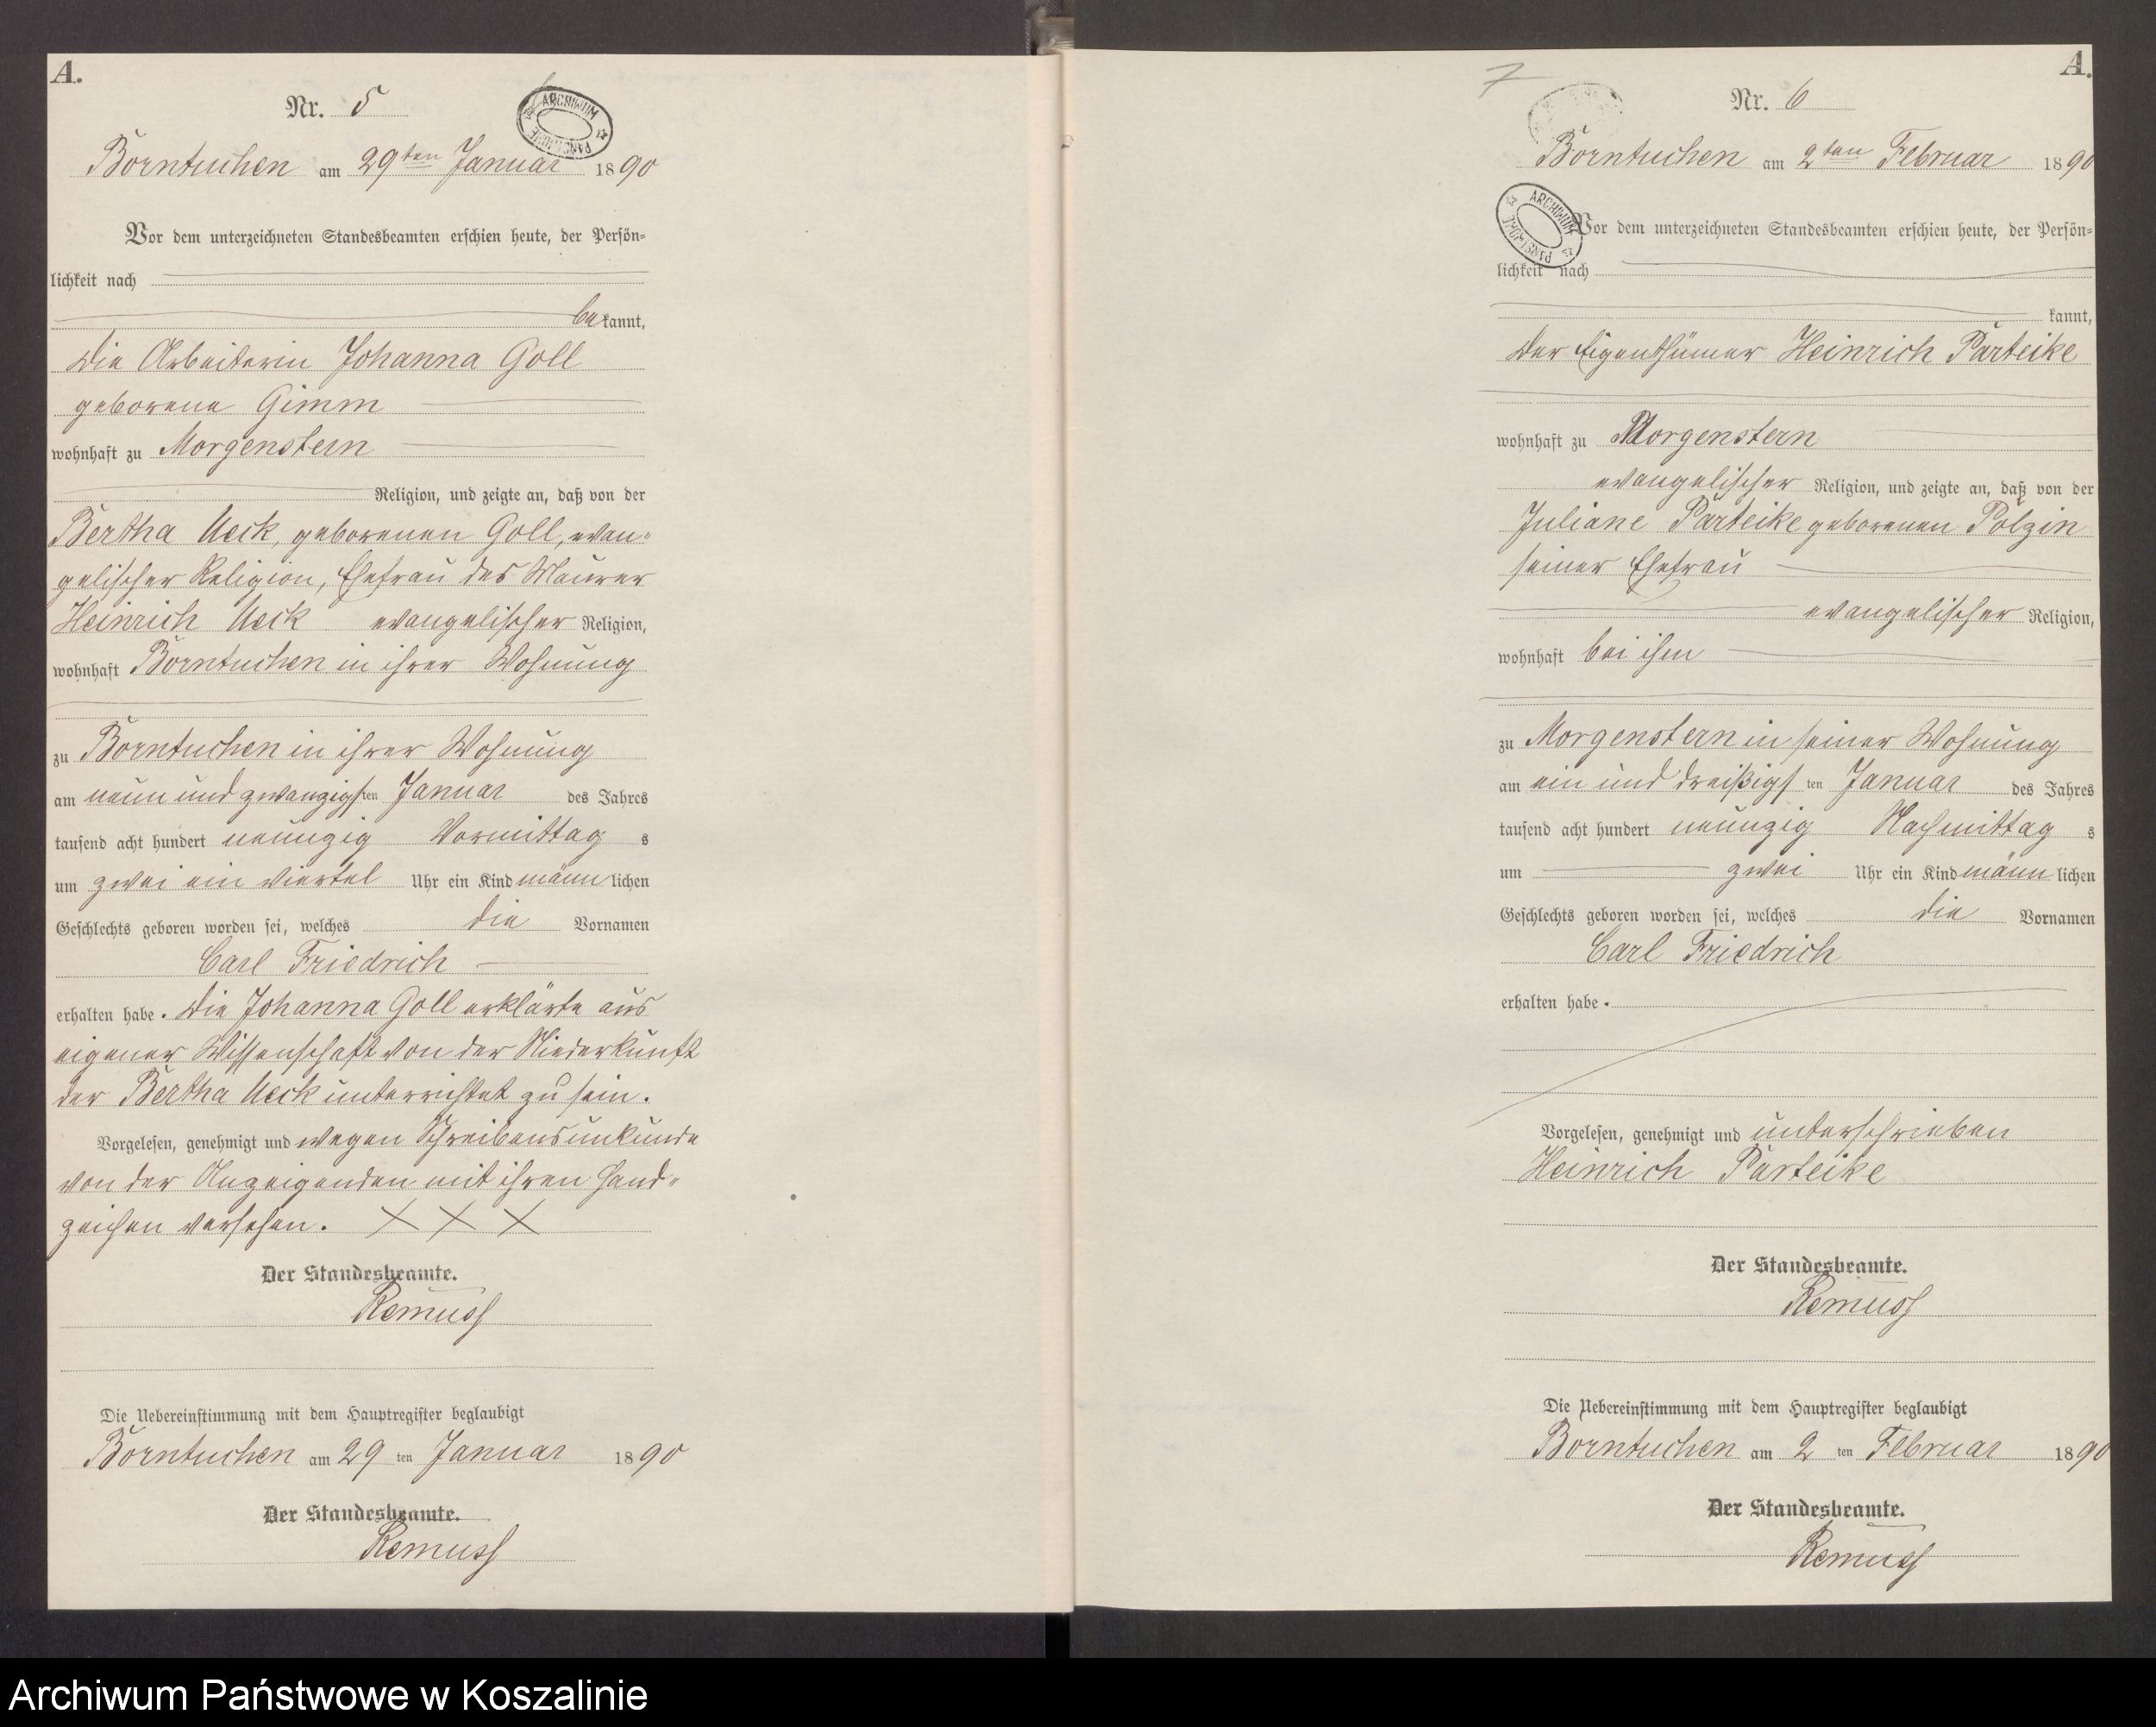 A.
Nr. 5
ARCHIWUM PAŃSTWOWE
Borntuchen am 29ten Januar 1890
Vor dem unterzeichneten Standesbeamten erschien heute, der Persön=
lichkeit nach
bekannt,
die Arbeiterin Johanna Goll
geborene Gimm
wohnhaft zu Morgenstern
Religion, und zeigte an, daß von der
Bertha Ueck, geborenen Goll, evan=
gelischer Religion, Ehefrau des Maurer
Heinrich Ueck evangelischer Religion,
wohnhaft Borntuchen in ihrer Wohnung
zu Borntuchen in ihrer Wohnung
am neun und zwanzigsten Januar des Jahres
tausend acht hundert neunzig Vormittags
um zwei ein viertel Uhr ein Kind männlichen
Geschlechts geboren worden sei, welches die Vornamen
Carl Friedrich
erhalten habe. Die Johanna Goll erklärte aus
eigener Wissenschaft von der Niederkunft
der Bertha Ueck unterrichtet zu sein.
Vorgelesen, genehmigt und wegen Schreibensunkunde
von der Anzeigenden mit ihren Hand=
zeichen versehen. X X X
Der Standesbeamte.
Remuss
Die Uebereinstimmung mit dem Hauptregister beglaubigt
Borntuchen am 29 ten Januar 1890
Der Standesbeamte.
Remuss
7
A.
Nr. 6
Borntuchen am 2ten Februar 1890
ARCHIWUM PAŃSTWOWE
Vor dem unterzeichneten Standesbeamten erschien heute, der Persön=
lichkeit nach
kannt,
der Eigenthümer Heinrich Parteike
wohnhaft zu Morgenstern
evangelischer Religion, und zeigte an, daß von der
Juliane Parteike geborenen Polzin
seiner Ehefrau
evangelischer Religion,
wohnhaft bei ihm
zu Morgenstern in seiner Wohnung
am ein und dreißigsten Januar des Jahres
tausend acht hundert neunzig Nachmittags
um zwei Uhr ein Kind männlichen
Geschlechts geboren worden sei, welches die Vornamen
Carl Friedrich
erhalten habe.
Vorgelesen, genehmigt und unterschrieben
Heinrich Parteike
Der Standesbeamte.
Remuss
Die Uebereinstimmung mit dem Hauptregister beglaubigt
Borntuchen am 2 ten Februar 1890
Der Standesbeamte.
Remuss
Archiwum Państwowe w Koszalinie